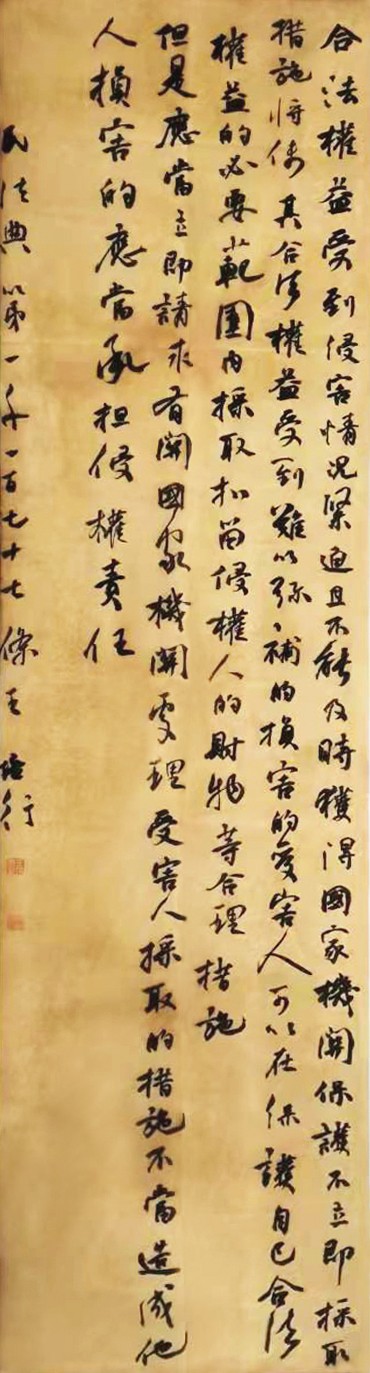 合法權益受到侵害情况緊迫且不能及時獲得國家機關保護不立即採取
措施將使其合法權益受到難以弥補的損害的受害人可以在保護自己合法
權益的必要範圍内採取扣留侵權人的財物等合理措施
但是應當立即請求有關國家機關處理受害人採取的措施不當造成他
人損害的應當承担侵權責任
民法典第一千一百七十七條 王